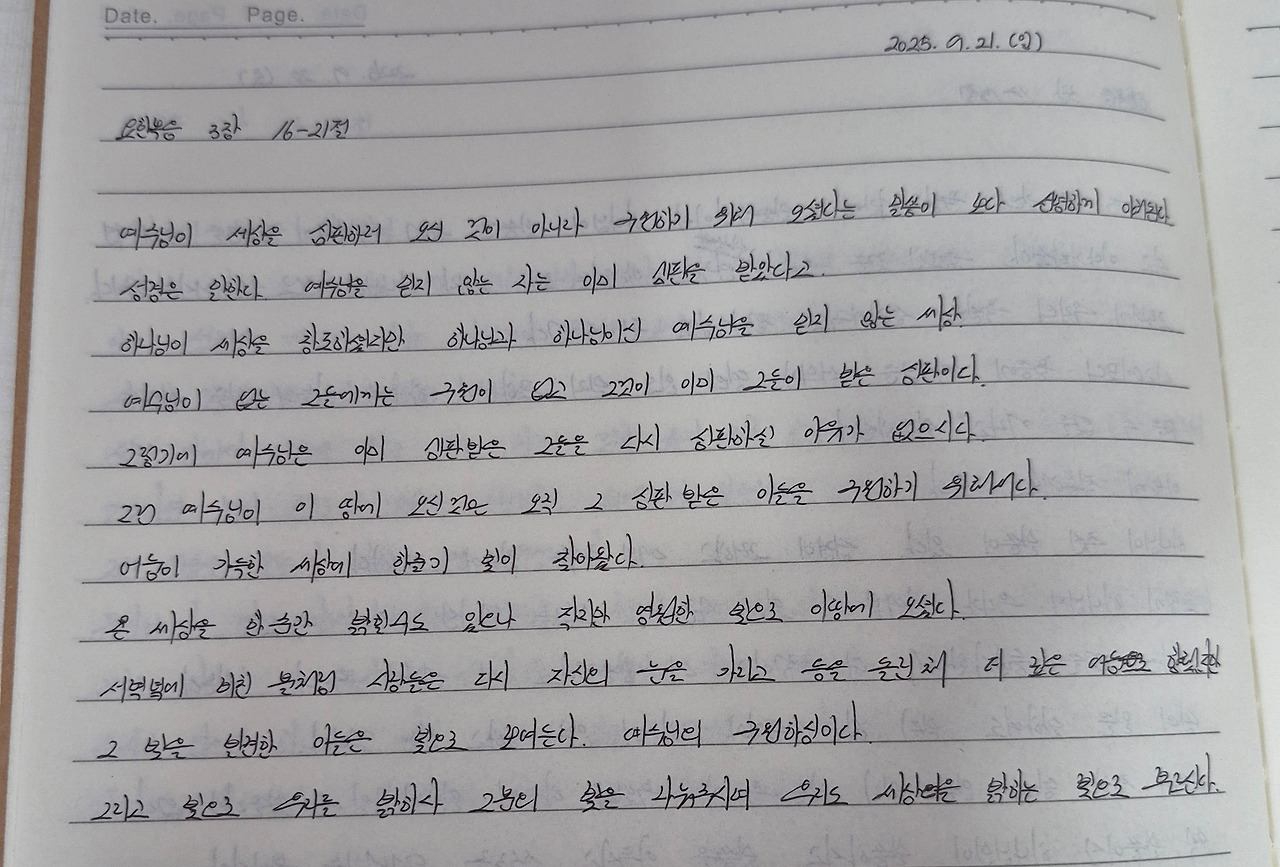 Date. Page.
2025. 9. 21. (일)
요한복음 3장 16-21절
예수님이 세상을 심판하러 오신 것이 아니라 구원하기 위해 오셨다는 말씀이 보다 선명하게 이해된다
성경은 말한다. 예수님을 믿지 않는 자는 이미 심판을 받았다고.
하나님이 세상을 창조하셨지만 하나님과 하나님이신 예수님을 믿지 않는 세상.
예수님이 없는 그들에게는 구원이 없고 그것이 이미 그들이 받은 심판이다.
그렇기에 예수님은 이미 심판받은 그들을 다시 심판하실 이유가 없으시다.
그런 예수님이 이 땅에 오신 것은 오직 그 심판 받은 이들을 구원하기 위해서다.
어둠이 가득한 세상에 한줄기 빛이 찾아왔다.
온 세상을 한 순간 밝힐수도 있으나 작지만 영원한 빛으로 이땅에 오셨다.
새벽녘에 비친 불처럼 사람들은 다시 자신의 눈을 가리고 등을 돌린 채 더 깊은
그 빛을 발견한 이들은 빛으로 모여든다. 예수님의 구원하심이다.
그리고 빛으로 우리를 밝히사 그분의 빛을 나눠주시며 우리도 세상을 밝히는 빛으로 부르신다.